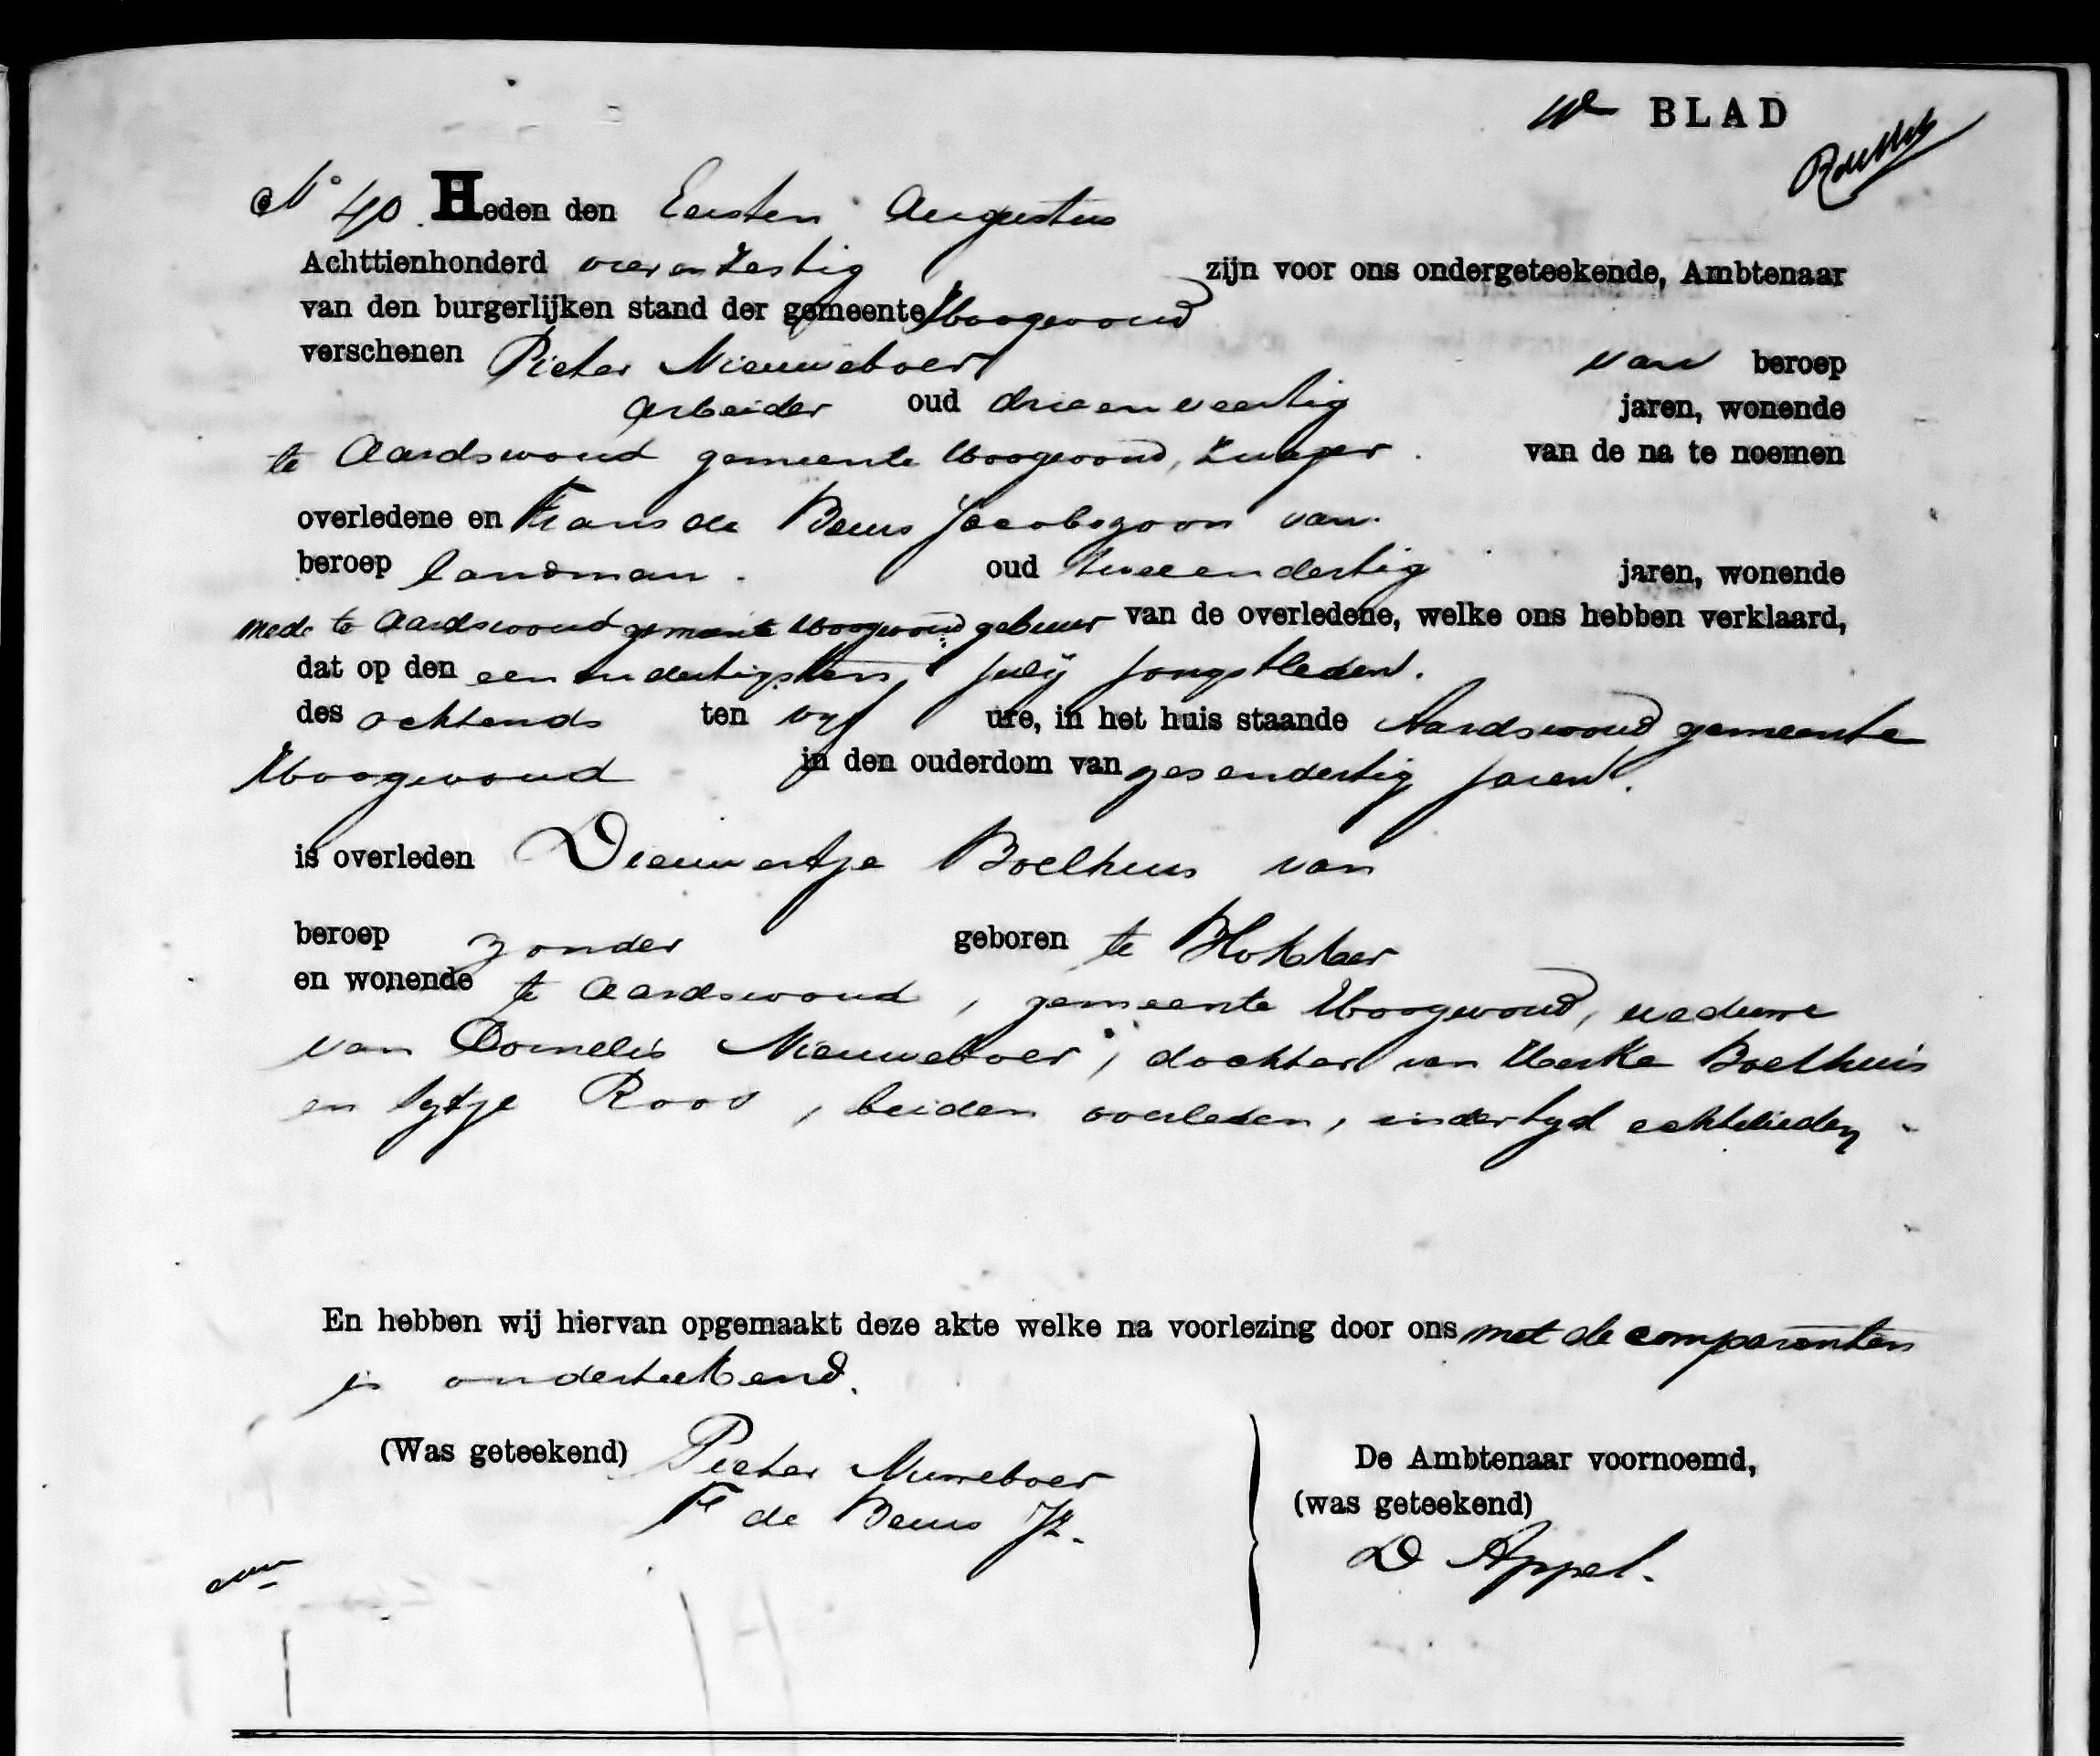 BLAD
No 40. Heden den Eersten Augustus
Achttienhonderd vier en zestig zijn voor ons ondergeteekende, Ambtenaar
van den burgerlijken stand der gemeente Hoogwoud
verschenen Pieter Nieuweboer van beroep
arbeider oud drieenveertig jaren, wonende
te Aardswoud gemeente Hoogwoud, zwager van de na te noemen
overledene en Frans de Beurs Jacobszoon van
beroep landman. oud tweeendertig jaren, wonende
mede te Aardswoud gemeente Hoogwoud gebuur van de overledene, welke ons hebben verklaard,
dat op den een en dertigsten July jongstleden.
des ochtends ten vyf ure, in het huis staande Aardswoud gemeente
Hoogwoud in den ouderdom van zesendertig jaren.
is overleden Dieuwertje Boelhuis van
beroep zonder geboren te Blokker
en wonende te Aardswoud, gemeente Hoogwoud, weduwe
van Cornelis Nieuweboer, dochter van Boelhuis
en Roos, beiden overleden, indertyd echtelieden
En hebben wij hiervan opgemaakt deze akte welke na voorlezing door ons met de comparanten
is onderteekend.
(Was geteekend) Pieter Nuweboer
F de Beurs Jz.
De Ambtenaar voornoemd,
(was geteekend)
D Appel.